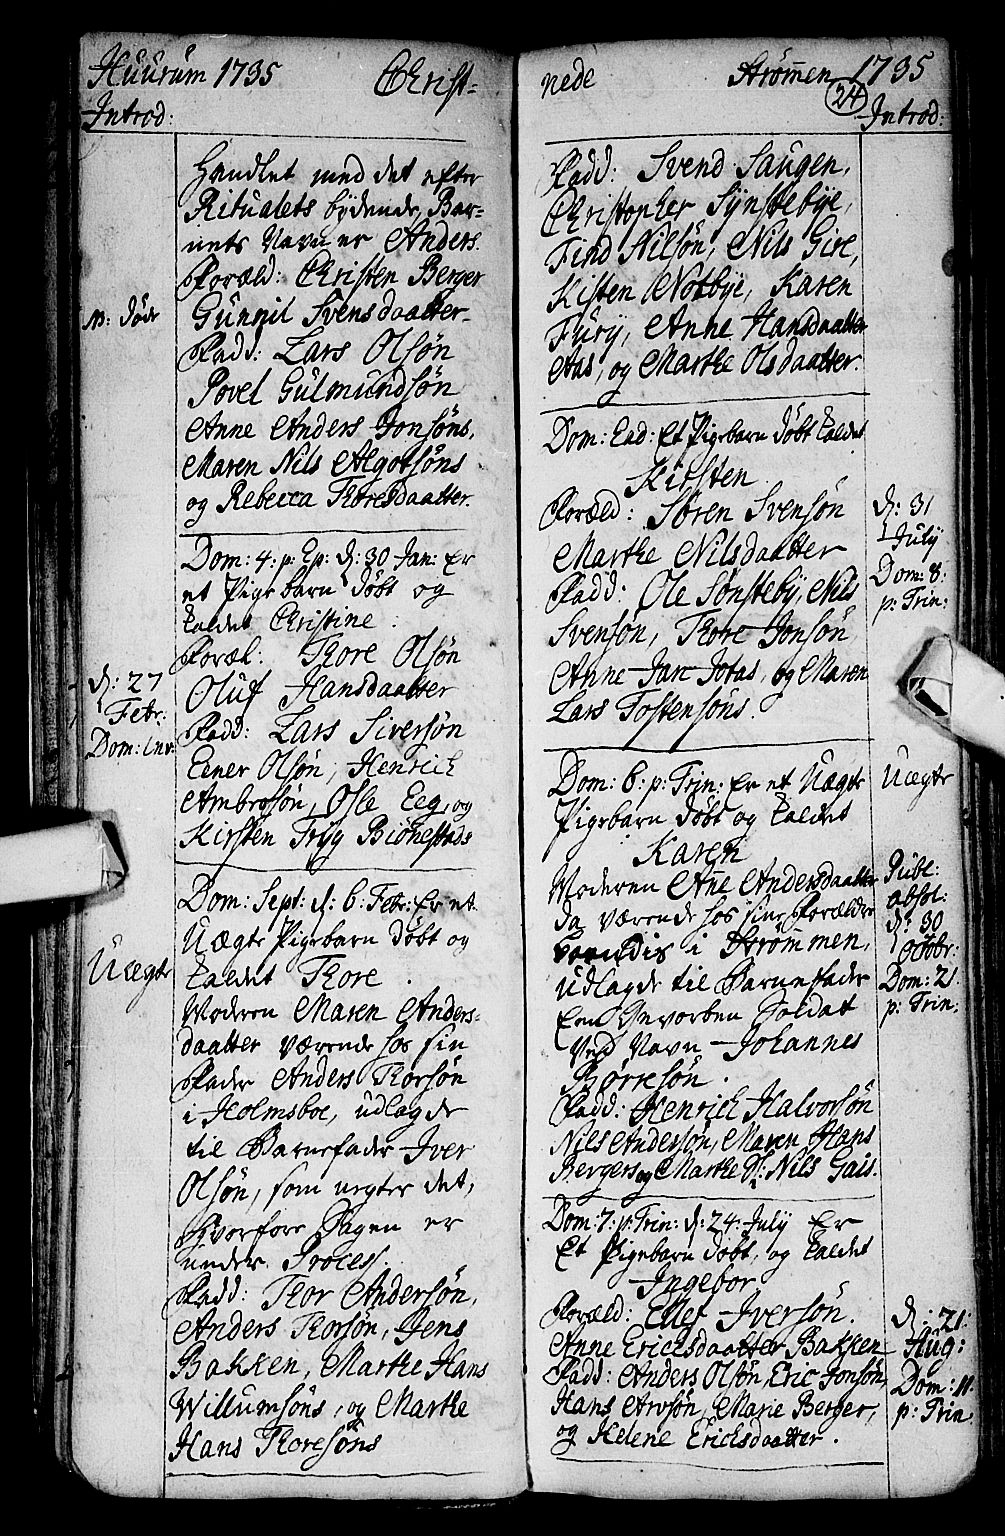 Huurum 1735 Christ-
Introd:
Handlet med det efter
Ritualets bydende, Bar-
nets Navn er Anders.
Foræld: Christen Berger
Gunnil Svensdaatter
M: død
Fadd: Lars Olsøn
Povel Gulmundsøn
Anne Anders Jonsøns,
Maren Nils Algotsøns
og Rebecca Thoresdaatter.
Dom: 4: p: Ep: d: 30 Jan: Er
et Pigebarn døbt og
kaldet Christine.
Foræl: Thore Olsøn
Oluf Hansdaatter
d: 27
Febr:
Dom: inv:
Fadd: Lars Siversøn
Ener Olsøn, Henrich
Ambrosøn, Osle Eeg, og
Kirsten Tryg Biønestads
Dom: Sept: d: 6: Febr: Er et
Uægte Pigebarn døbt og
kaldet Thore.
Uægte
Moderen Maren Anders-
daatter værende hos sin
Fader Anders Thorsøn
i Holmsboe, udlagde
til Barnefader Iver
Olsøn, som negter det,
hvorfore Sagen er
under Proces.
Fadd: Thor Andersøn,
Anders Thorsøn, Jens
Bakken, Marthe Hans
Willumsøns, og Marthe
Hans Thoresøns
nede Strømmen 1735
24
Introd:
Fadd: Svend Saugen,
Christopher Synstebye,
Find Nilsøn, Nils Gire,
Kisten Notbye, Karen
Fury, Anne Hansdaatter
Aas, og Marthe Olsdaatter.
Dom: Ead: Et Pigebarn døbt kaldet
Kirsten
Foræld: Søren Svensøn
Marthe Nilsdaatter
d: 31
July
Dom: 8:
p: Trin:
Fadd: Ole Sønsteby, Nils
Svensøn, Thore Jonsøn
Anne Jan Jotas, og Maren
Lars Tostensøns.
Dom: 6: p: Trin: Er et Uægte
Pigebarn døbt og kaldet
Karen
Uægte
Moderen Anne Andersdaatter
da værende hos sine Forældre
i Strømmen,
udlagde til Barnefader
Een Geworben Soldat
Ved Navn Johannes
Børresøn.
Pube:
absol:
d: 30
octobr:
Dom: 21
p: Trin:
Fadd: Henrich Halvorsøn
Nils Andersøn, Maren Hans
Bergers og Marthe D: Nils Gais.
Dom: 7: p: Trin: d: 24: July Er
Et Pigebarn døbt, og kaldet
Ingebor
Foræld: Ellef Iversøn.
Anne Ericksdaatter Bakken
d: 21:
Aug:
Dom: 11
p: Trin
Fadd: Anders Olsøn, Eric Jonsøn,
Hans Arvsøn, Marie Berger,
og Helene Ericksdaatter.